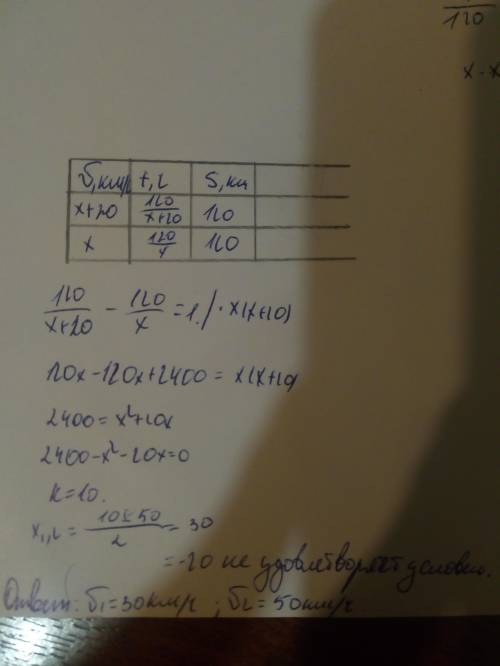 120
x · x
υ, км/ч t, ч S, км
x+20 120/(x+20) 120
x 120/x 120
120/(x+20) − 120/x = 1 | · x(x+20)
120x−120x+2400 = x(x+20)
2400 = x²+20x
2400−x²−20x=0
k=10.
x₁,₂ = (10±50)/2 = 30
= -20 не удовлетворяет условию.
Ответ: υ₁=30км/ч ; υ₂=50км/ч